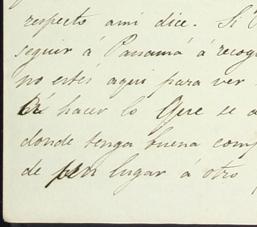 respecto ami dice. Si
seguir á Panamá á recog
no estés aqui para ver
hacer lo que se a
donde tenga buena comp
de lugar á otro